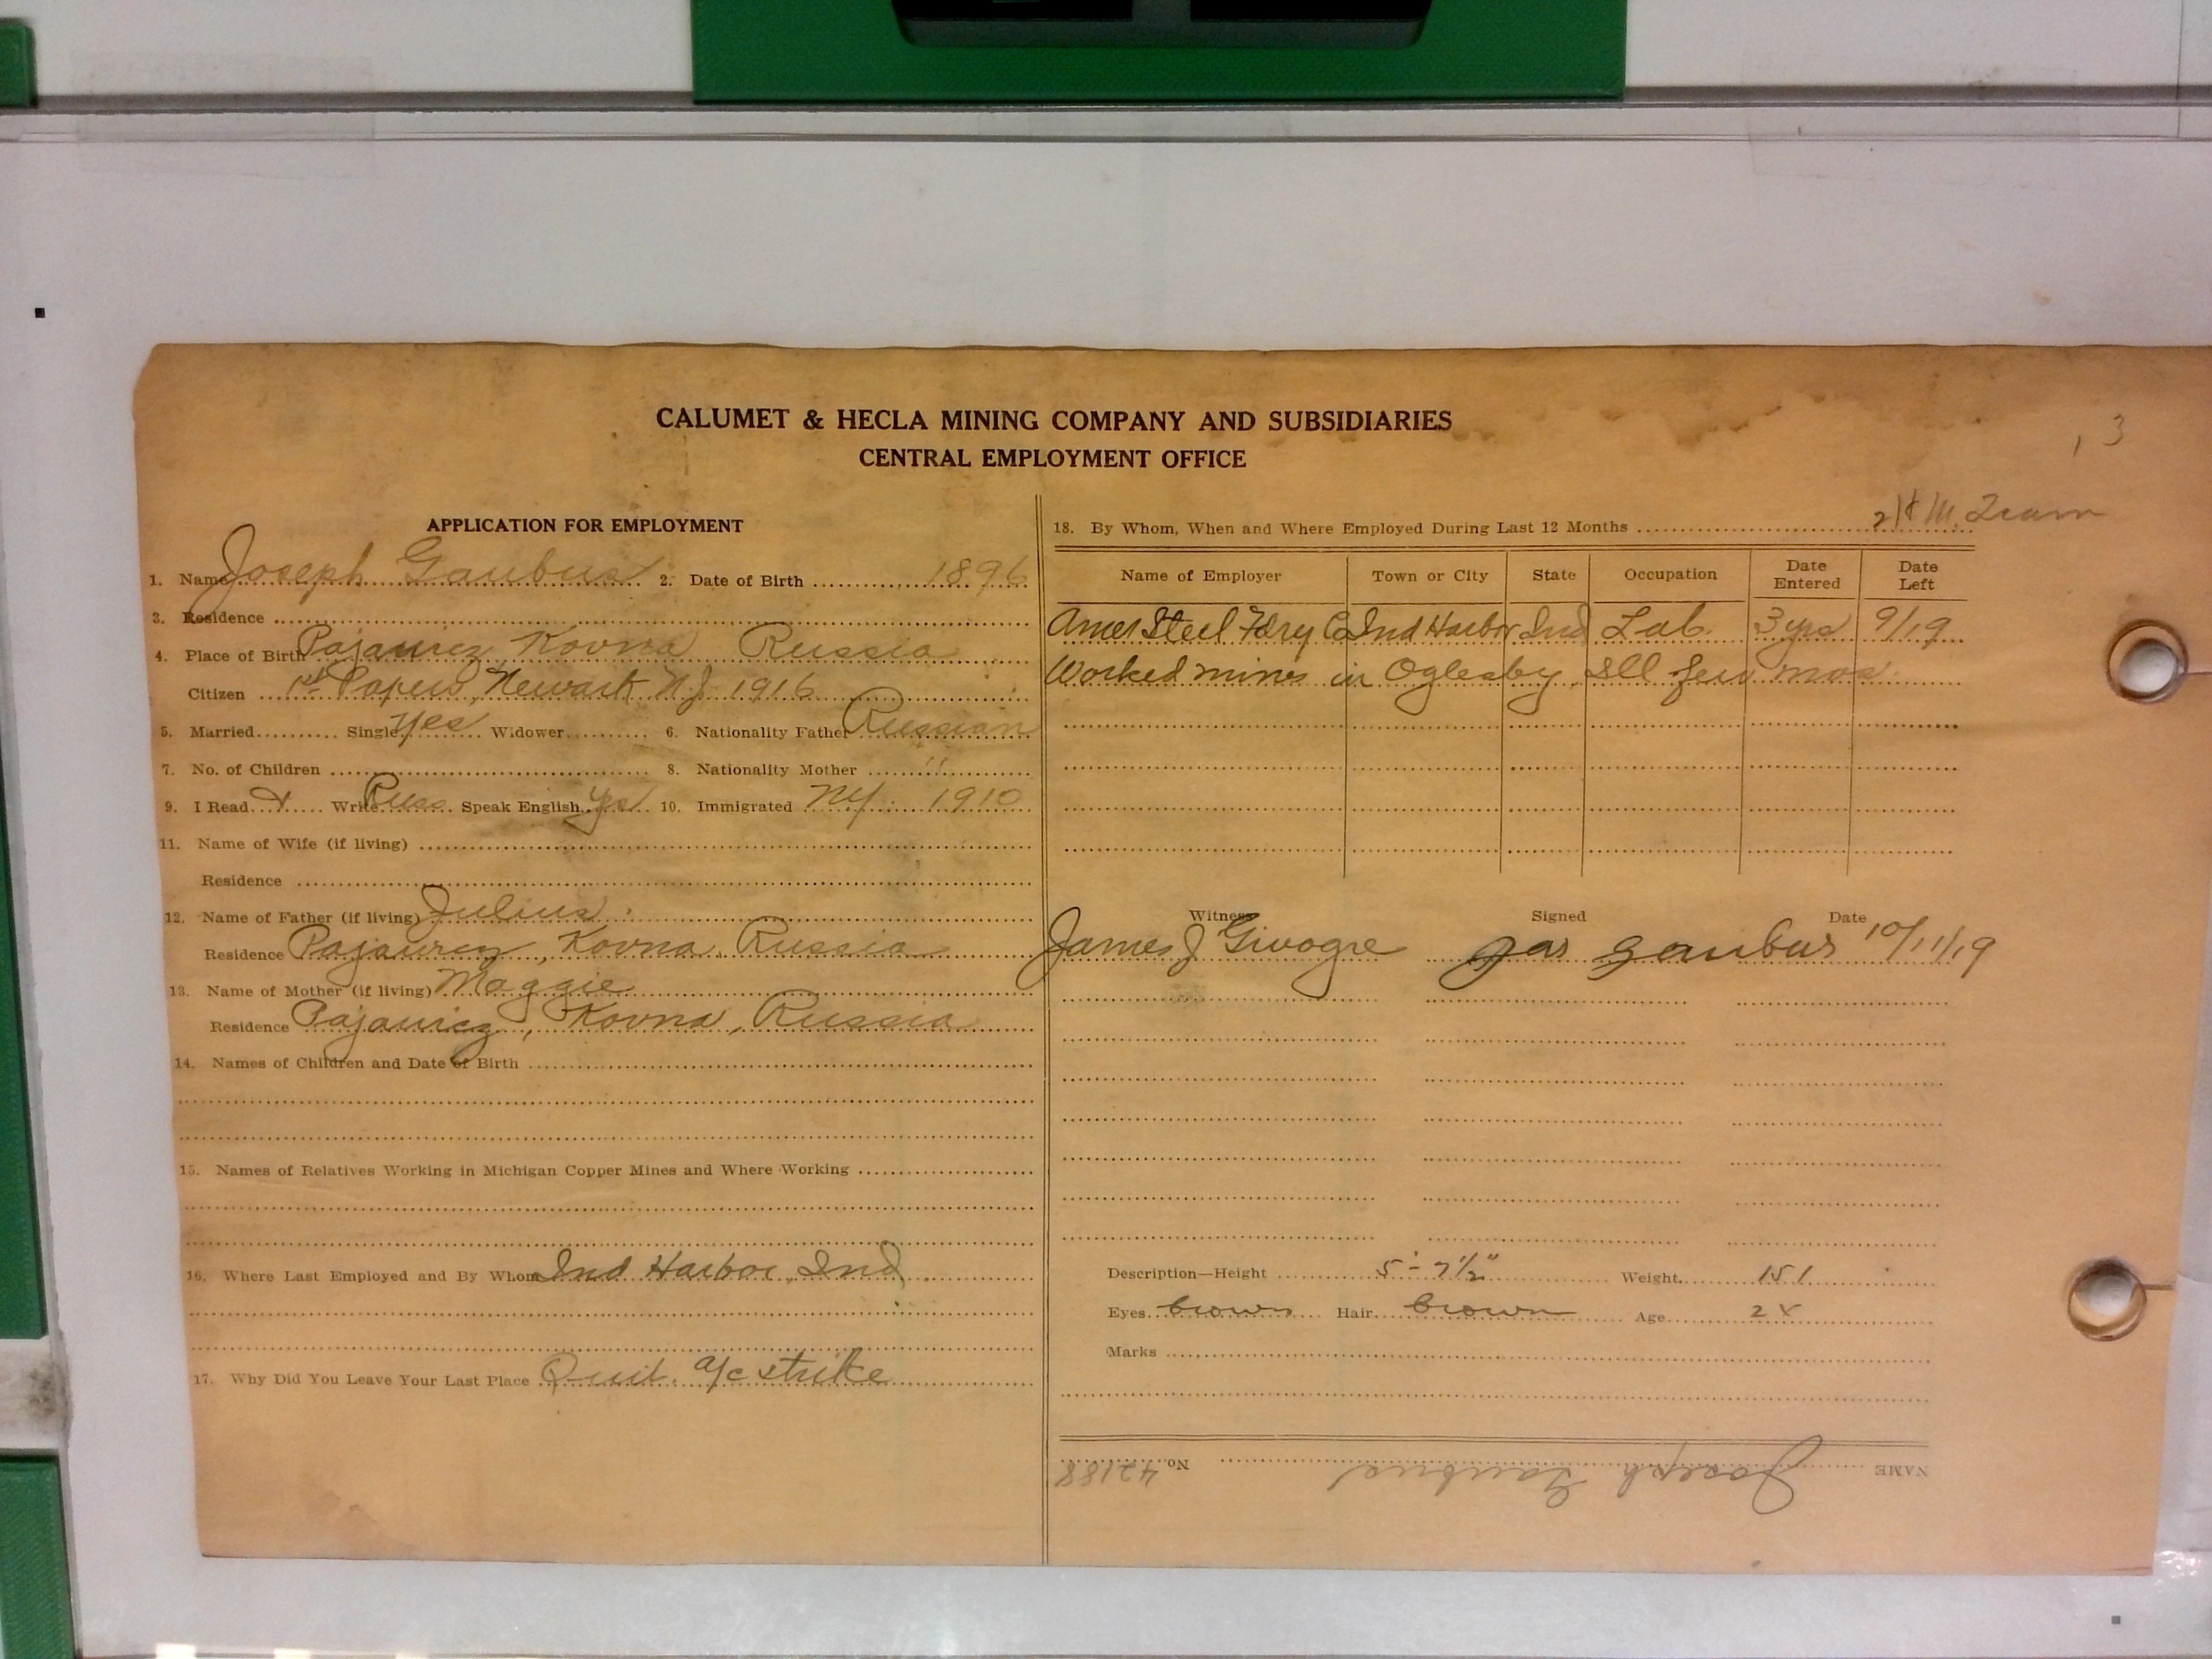 , 3
CALUMET & HECLA MINING COMPANY AND SUBSIDIARIES
CENTRAL EMPLOYMENT OFFICE
APPLICATION FOR EMPLOYMENT
1. Name Joseph Gaubus 2. Date of Birth 1896
3. Residence
4. Place of Birth Kovna Russia
Citizen 1st Papers, Newark N.J. 1916
5. Married Single yes Widower 6. Nationality Father Russian
7. No. of Children 8. Nationality Mother "
9. I Read & Write Russ Speak English yes 10. Immigrated NY. 1910
11. Name of Wife (if living)
Residence
12. Name of Father (if living) Julius
Residence Kovna, Russia
13. Name of Mother (if living) Maggie
Residence Kovna, Russia
14. Names of Children and Date of Birth
15. Names of Relatives Working in Michigan Copper Mines and Where Working
16. Where Last Employed and By Whom Ind Harbor, Ind
17. Why Did You Leave Your Last Place Quit. a/c strike
Tram
18. By Whom, When and Where Employed During Last 12 Months
Name of Employer Town or City State Occupation Date Entered Date Left
Amer Steel Fdry Co Ind Harbor Ind Lab. 3 yrs 9/19
Worked mines in Oglesby, Ill few mos
Witness Signed Date
James J Givogre Jos gaubus 10/11/19
Description—Height 5'-7½" Weight 151
Eyes brown Hair brown Age
Marks
NAME Joseph Gaubus No. 42188